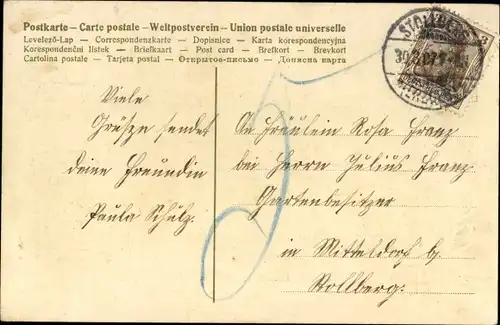 Postkarte – Carte postale – Weltpostverein – Union postale universelle
Levelező-Lap — Correspondenzkarte — Dopisnice — Karta korespondencyjna
Korespondenční lístek — Briefkaart — Post card — Brefkort — Brevkort
Cartolina postale — Tarjeta postal — Открытое-письмо — Дописна карта
STOLLBERG
5
Viele
Grüße sendet
deine Freundin
Paula Schulz.
An Fräulein Rosa Franz
bei Herrn Julius Franz
Gartenbesitzer
in Mitteldorf b.
Stollberg.